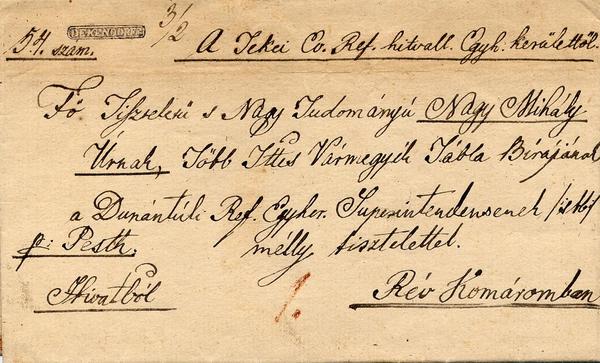 TEKENDORF
3/2
54. szám. A Tekei Ev. Ref. hitvall. Egyh. kerülettől.
Fő Tiszteletű s Nagy Tudományú Nagy Mihály
Úrnak, Több Ttes Vármegyék Tábla Bírájának
a Dunántúli Ref. Egyker. Superintendensenek
p: Pesth. mélly tisztelettel.
Hivatból 1. Rév Komáromban